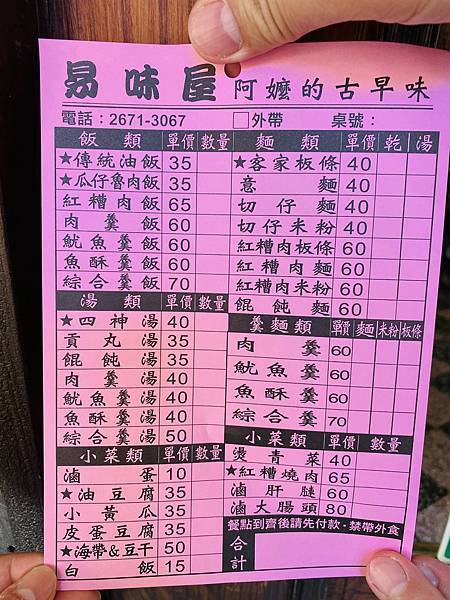 易味屋 阿嬤的古早味
電話：2671-3067 □外帶 桌號：
飯類 單價 數量
★傳統油飯 35
★瓜仔魯肉飯 35
紅糟肉飯 65
肉羹飯 60
魷魚羹飯 60
魚酥羹飯 60
綜合羹飯 70
湯類 單價 數量
★四神湯 40
貢丸湯 35
餛飩湯 35
肉羹湯 40
魷魚羹湯 40
魚酥羹湯 40
綜合羹湯 50
小菜類 單價 數量
滷蛋 10
★油豆腐 35
小黃瓜 35
皮蛋豆腐 35
★海帶&豆干 50
白飯 15
麵類 單價 乾 湯
★客家板條 40
意麵 40
切仔麵 40
切仔米粉 40
紅糟肉板條 60
紅糟肉麵 60
紅糟肉米粉 60
餛飩麵 60
羹麵類 單價 麵 米粉 板條
肉羹 60
魷魚羹 60
魚酥羹 60
綜合羹 70
小菜類 單價 數量
燙青菜 40
★紅糟燒肉 65
滷肝腱 60
滷大腸頭 80
餐點到齊後請先付款·禁帶外食
合計